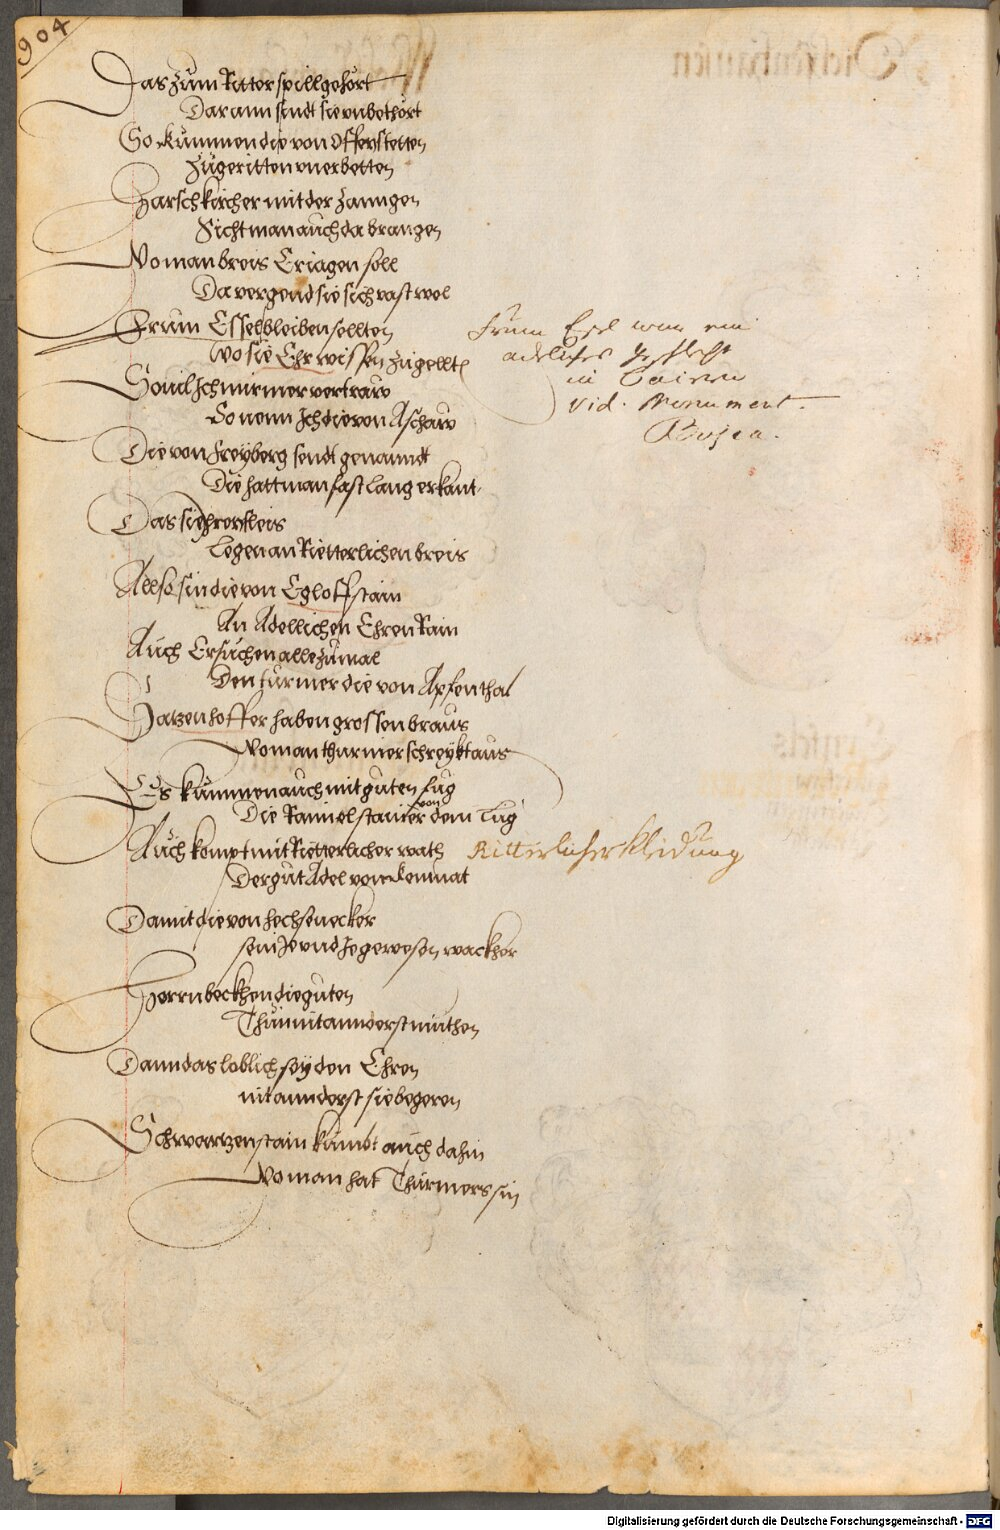 904
Das zum Ritterspill gehört
Darann sindt sie unbethört
So kummen die von Offenstetten
Zugeritten unerbetten
Parschkircher mit der Zanngen
Sicht man auch da brangen
Wo man breis Eriagen soll
Da vergend sie sich vast wol
Frum Essel bleiben sollten
Wo sie Ehr wissen zugellten
Sovil Ich mir mer vertraw
So nenn Ich die von Aschaw
Die von Freyberg sendt genanndt
Die hatt man fast lang erkant
Das sie Ihren fleis
Legen an Rietterlichen breis
Allso sin die von Egloffstain
An Adellichen Ehren Rain
Auch Ersuchen alle zumal
Den turmer die von Apfenthal
Satzenhoffer haben grossen braus
Wo man thurnier schreykt aus
Es kummen auch mit guten fug
Die Ramelstainer von dem Lug
Auch kompt mit Rietterlicher wath
Der gut Adel von Kemnat
Damit die von Hechsenecker
sein Je und Je gewesen wackher
Herrn beckhen die guten
Thun nit annderst muthen
Dann das loblich sey den Ehren
nit annderst sie begeren
Schwartzenstain kumbt auch dahin
Wo man hat Thurniers sin
Frum Esel war ein
adeliches geschlecht
in Baiern
vid. Monument.
Boica.
Ritterlicher Kleidung
Digitalisierung gefördert durch die Deutsche Forschungsgemeinschaft - DFG